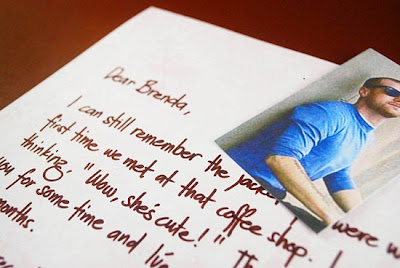 Dear Brenda,
I can still remember the were
first time we met at that coffee shop. I
thinking, "Wow, she's cute!"
you for some time and I've
months.